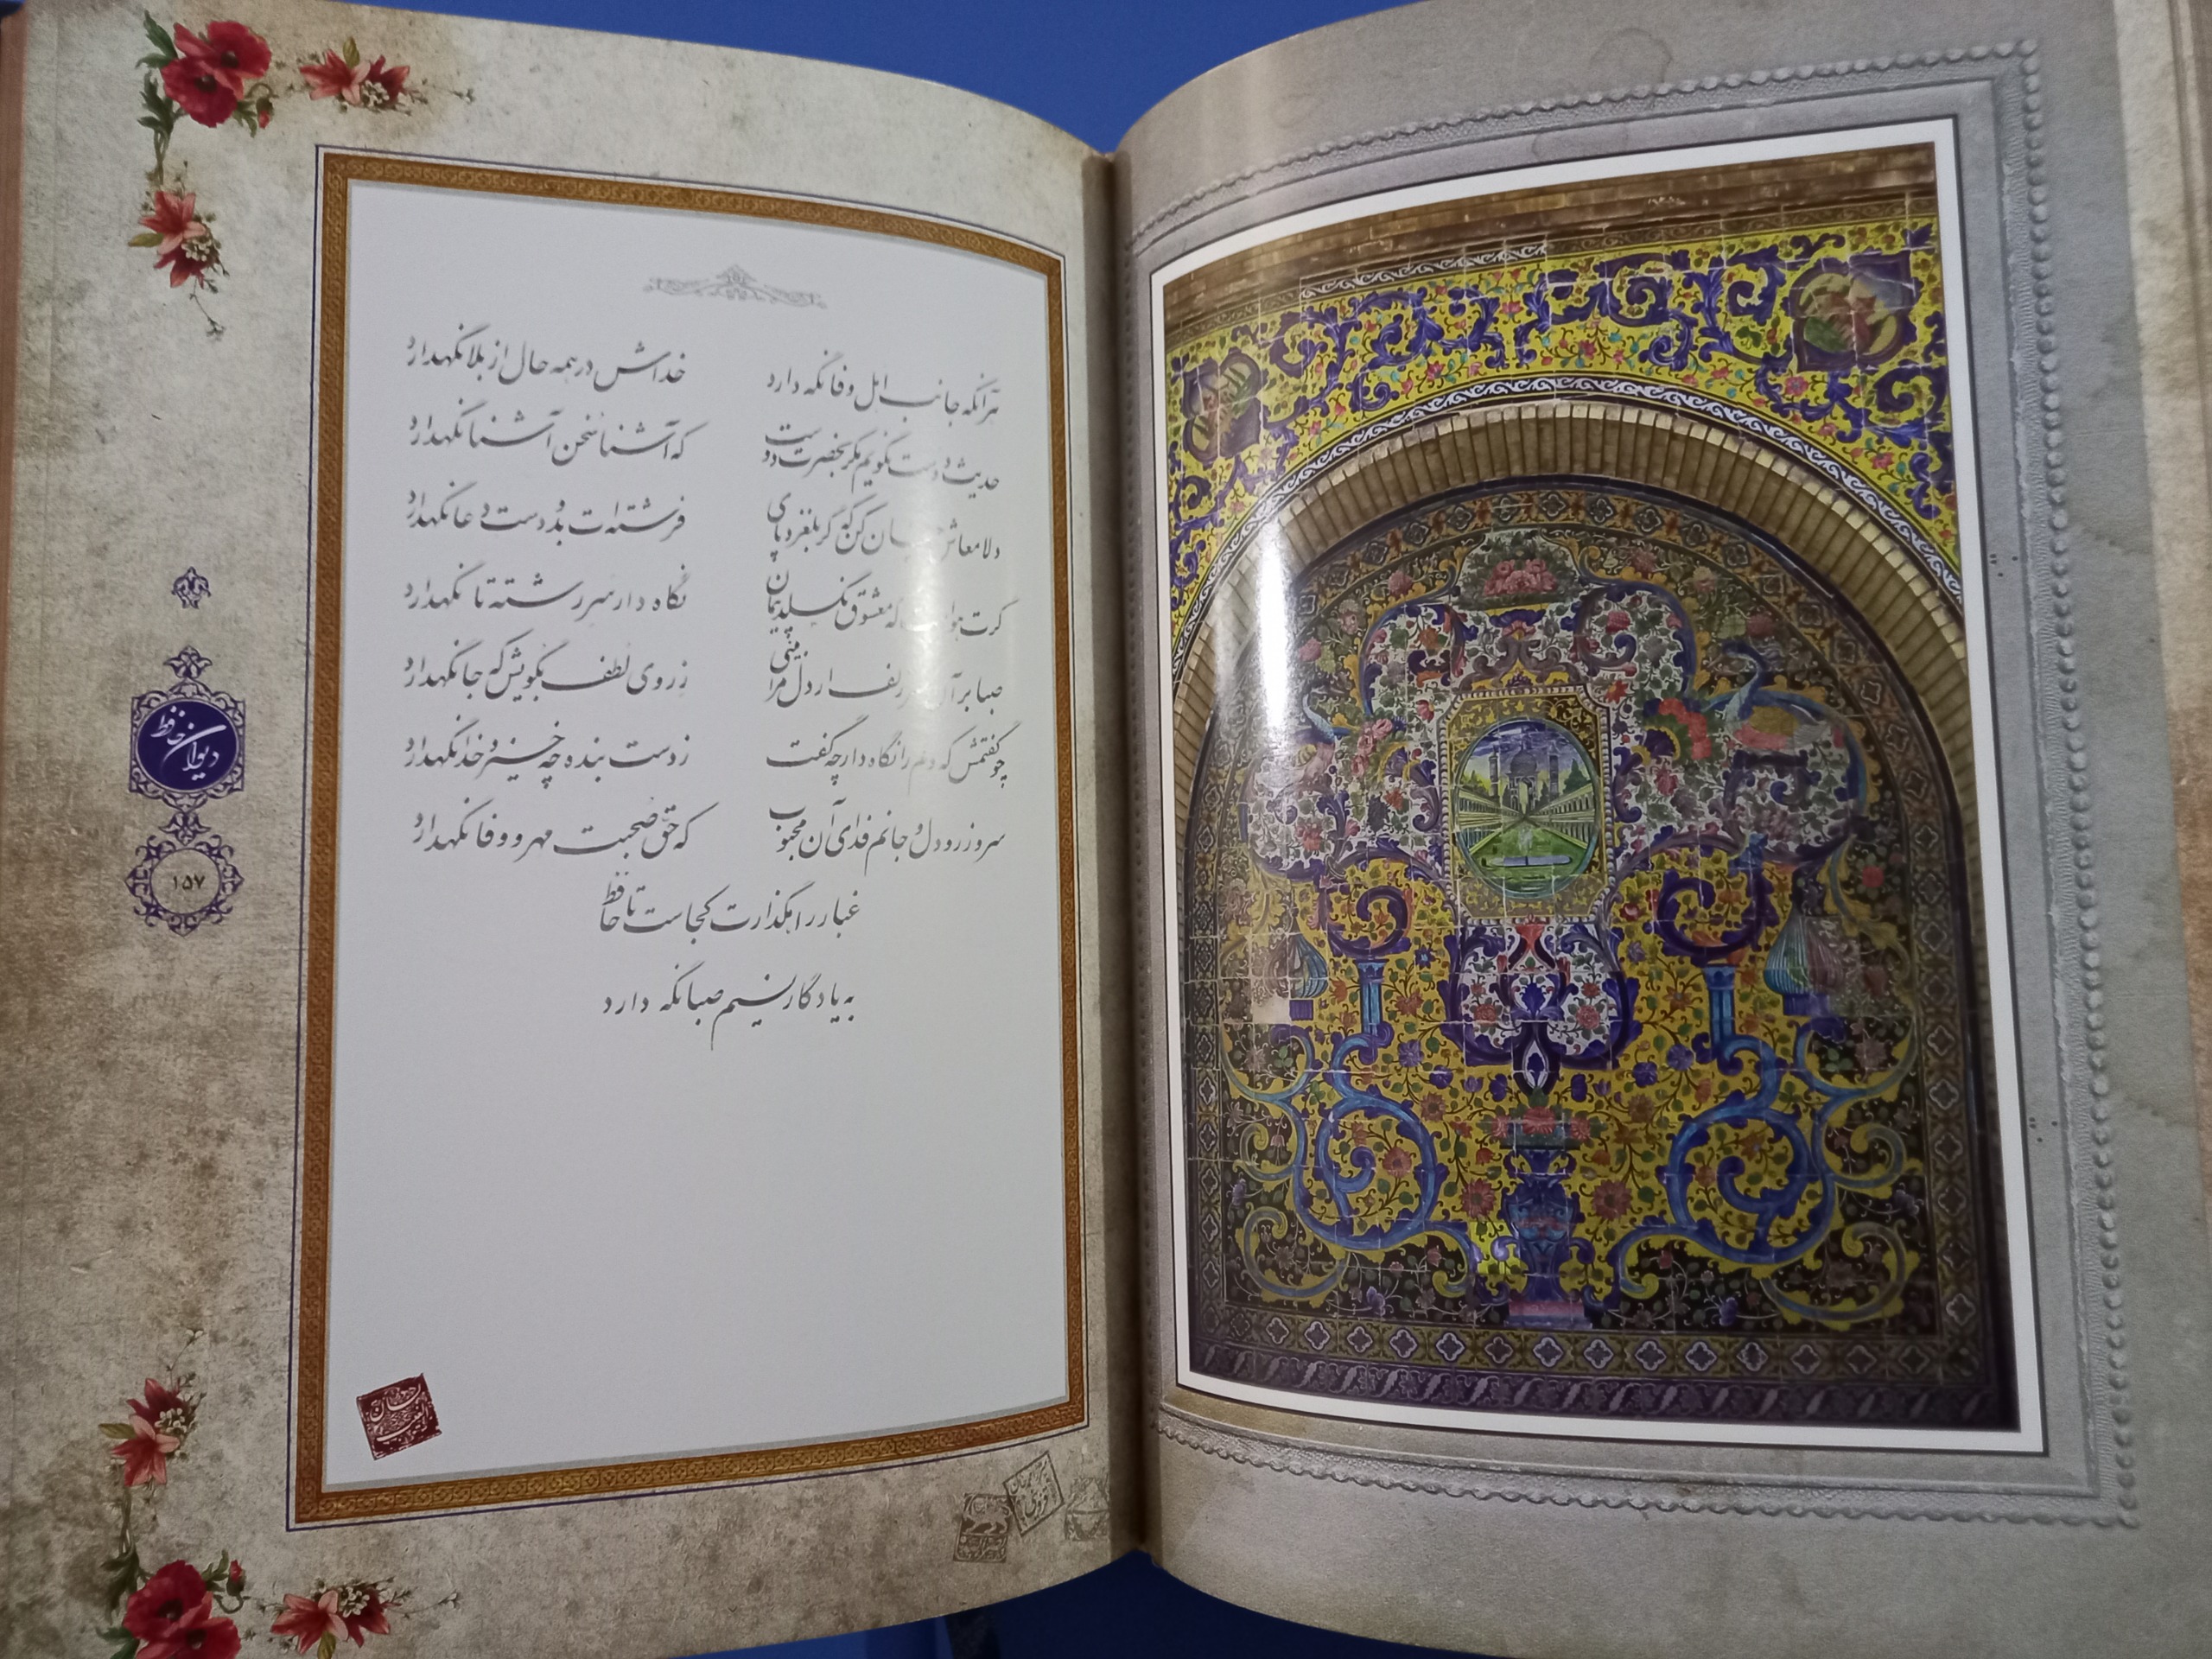 هرآنکه جانب اهل وفا نگه دارد خداش در همه حال از بلا نگهدارد
حدیث دوست نگویم مگر بحضرت دوست که آشنا سخن آشنا نگهدارد
دلا معاش چنان کن که گر بلغزد پای فرشته‌ات بدو دست دعا نگهدارد
گرت هواست که معشوق نگسلد پیمان نگاه دار سر رشته تا نگهدارد
صبا بر آن سر زلف ار دل مرا بینی ز روی لطف بگویش که جا نگهدارد
چو گفتمش که دلم را نگاه دار چه گفت ز دست بنده چه خیزد خدا نگهدارد
سر و زر و دل و جانم فدای آن محبوب که حقّ صحبت مهر و وفا نگهدارد
غبار راهگذارت کجاست تا حافظ
به یادگار نسیم صبا نگه دارد
دیوان حافظ
۱۵۷